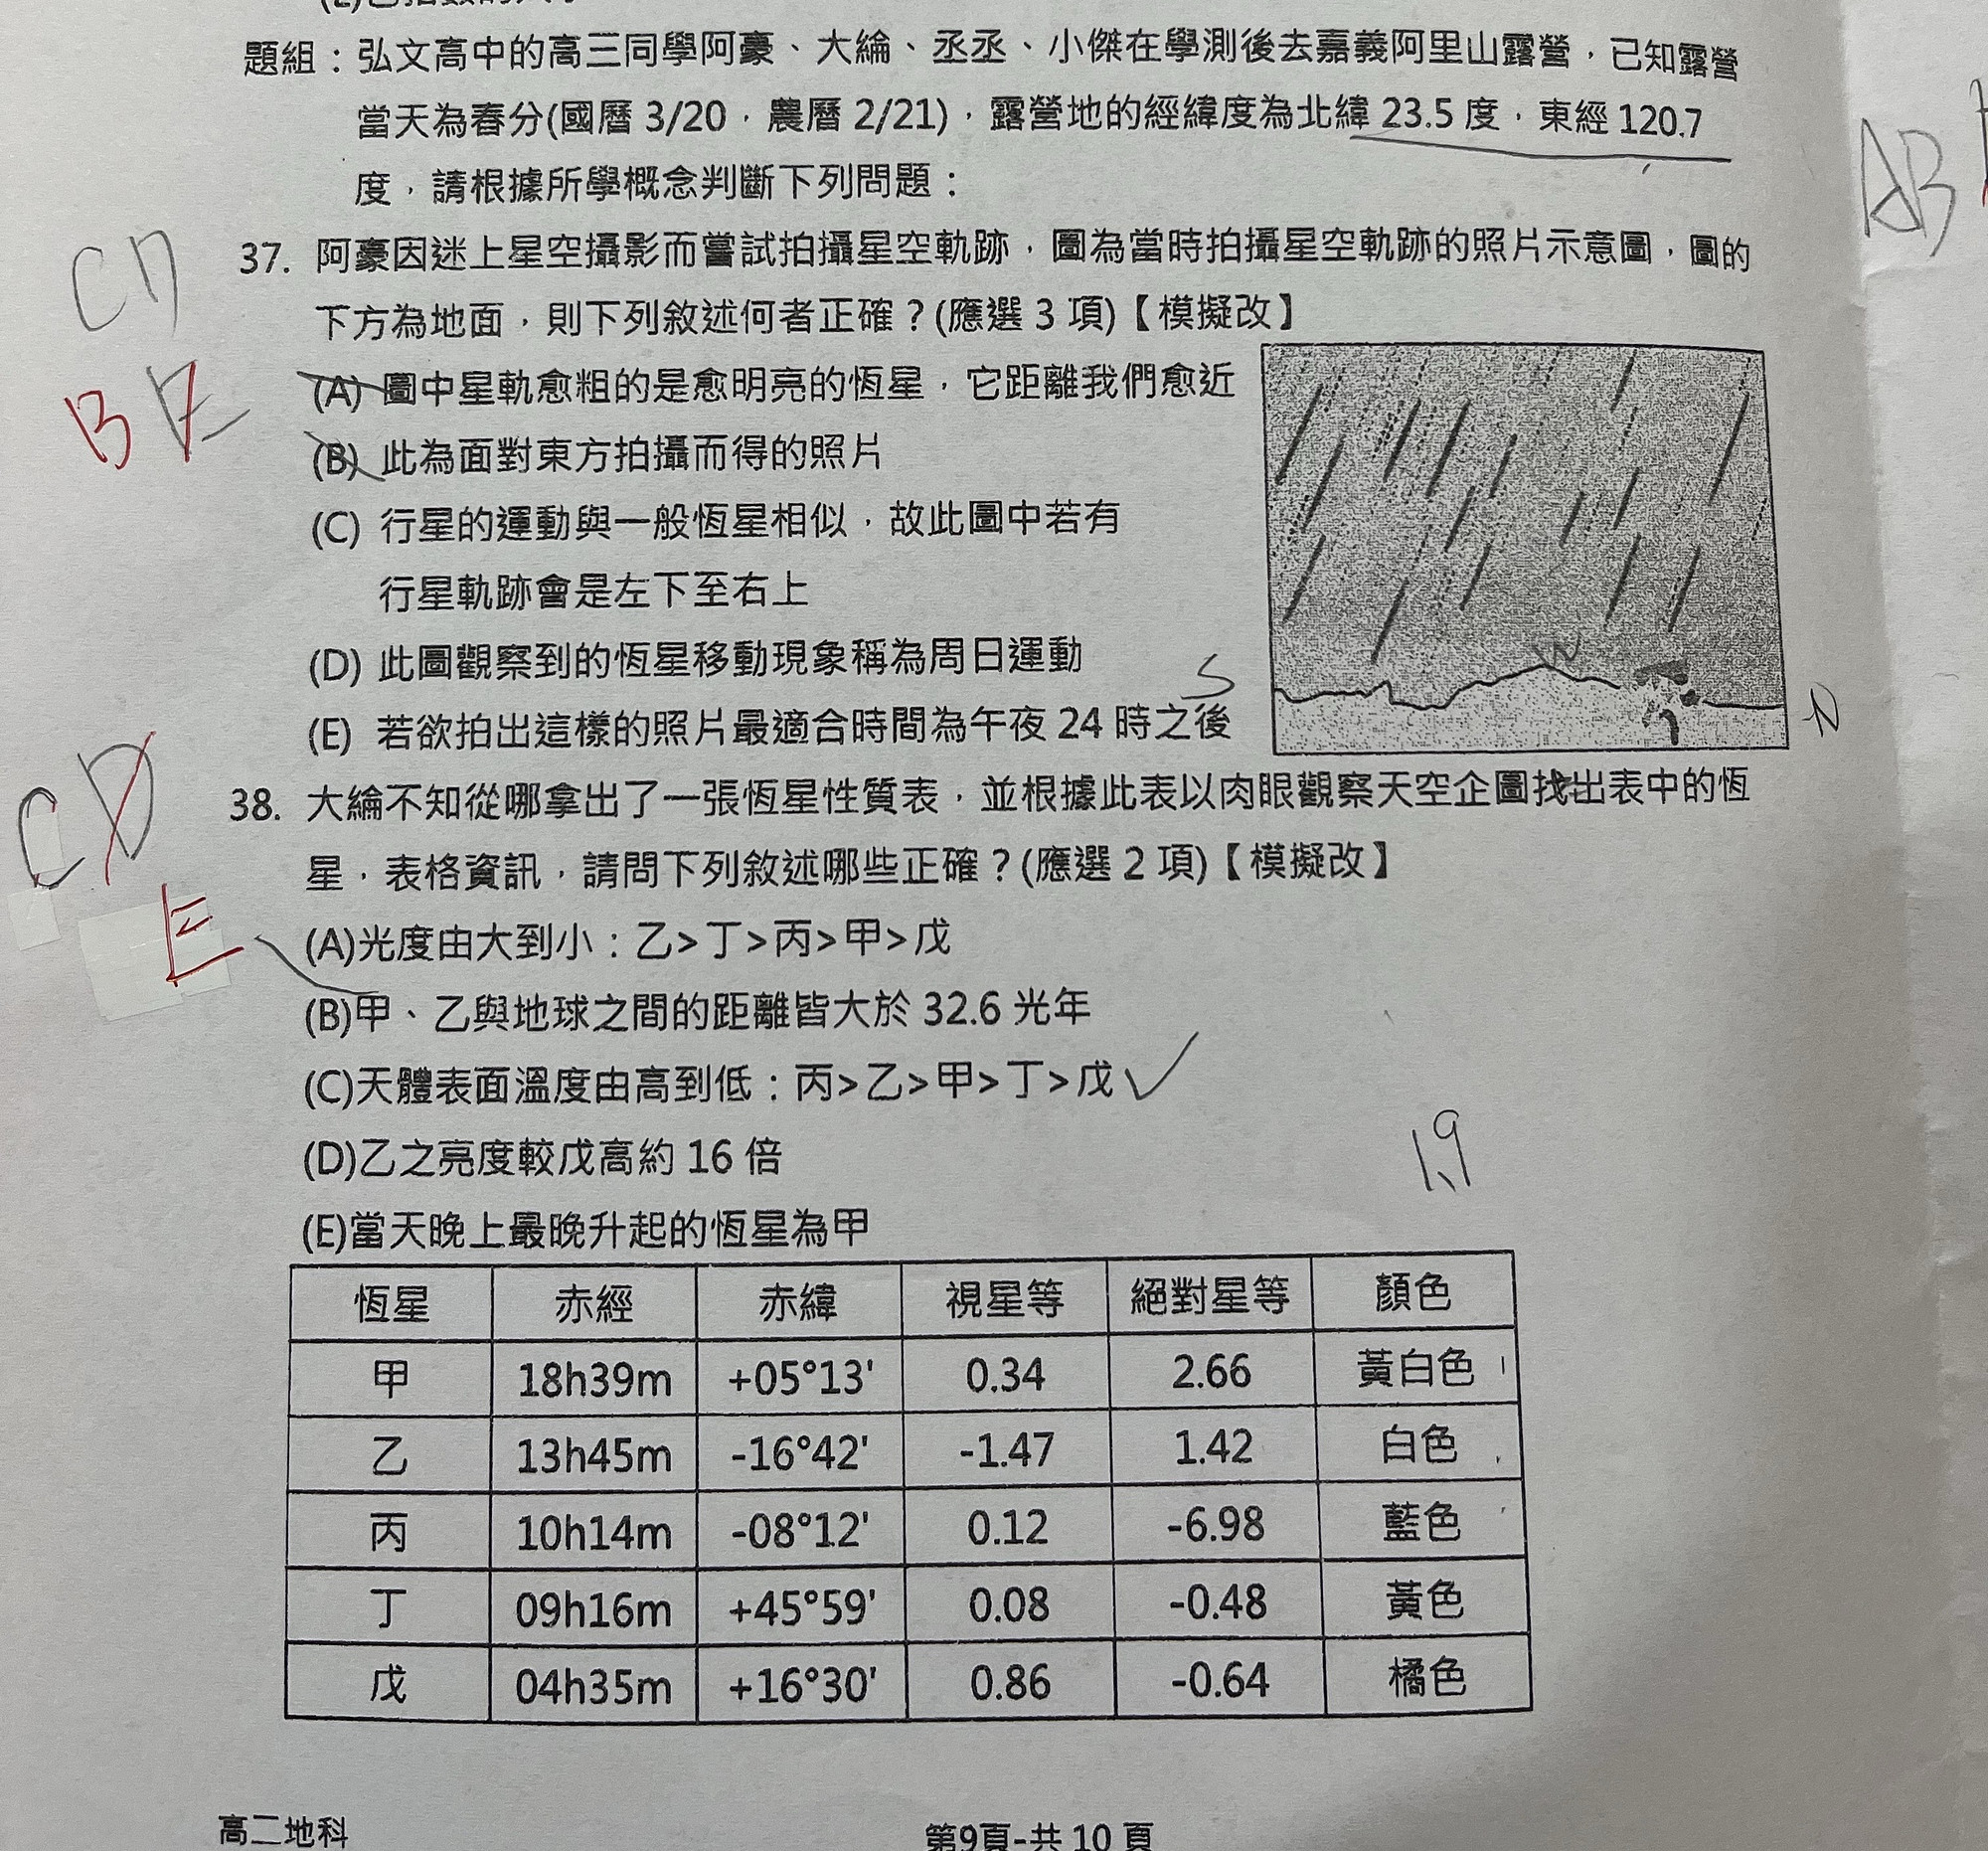 題組：弘文高中的高三同學阿豪、大綸、丞丞、小傑在學測後去嘉義阿里山露營，已知露營
當天為春分(國曆 3/20，農曆 2/21)，露營地的經緯度為北緯 23.5 度，東經 120.7
度，請根據所學概念判斷下列問題：
AB
CD
BE
37. 阿豪因迷上星空攝影而嘗試拍攝星空軌跡，圖為當時拍攝星空軌跡的照片示意圖，圖的
下方為地面，則下列敘述何者正確？(應選 3 項)【模擬改】
(A) 圖中星軌愈粗的是愈明亮的恆星，它距離我們愈近
(B) 此為面對東方拍攝而得的照片
(C) 行星的運動與一般恆星相似，故此圖中若有
行星軌跡會是左下至右上
(D) 此圖觀察到的恆星移動現象稱為周日運動
(E) 若欲拍出這樣的照片最適合時間為午夜 24 時之後
S
W
N
CD
E
38. 大綸不知從哪拿出了一張恆星性質表，並根據此表以肉眼觀察天空企圖找出表中的恆
星，表格資訊，請問下列敘述哪些正確？(應選 2 項)【模擬改】
(A)光度由大到小：乙>丁>丙>甲>戊
(B)甲、乙與地球之間的距離皆大於 32.6 光年
(C)天體表面溫度由高到低：丙>乙>甲>丁>戊
(D)乙之亮度較戊高約 16 倍
1.9
(E)當天晚上最晚升起的恆星為甲
恆星 赤經 赤緯 視星等 絕對星等 顏色
甲 18h39m +05°13' 0.34 2.66 黃白色
乙 13h45m -16°42' -1.47 1.42 白色
丙 10h14m -08°12' 0.12 -6.98 藍色
丁 09h16m +45°59' 0.08 -0.48 黃色
戊 04h35m +16°30' 0.86 -0.64 橘色
高二地科
第9頁-共 10 頁